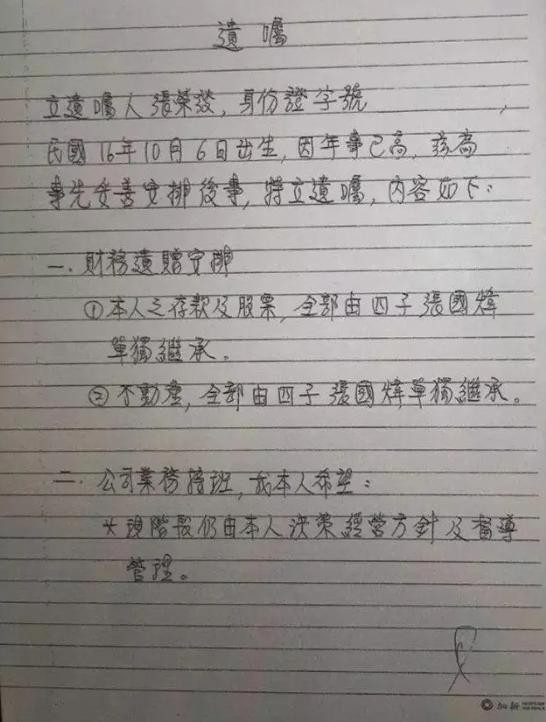 遺囑
立遺囑人張榮發，身份證字號
民國16年10月6日出生，因年事已高，
事先妥善安排後事，特立遺囑，內容如下：
一．財務遺贈安排
①本人之存款及股票，全部由四子張國煒
單獨繼承。
②不動產，全部由四子張國煒單獨繼承。
二．公司業務接班，我本人希望：
*現階段仍由本人決策經營方針及督導
管理。
加新